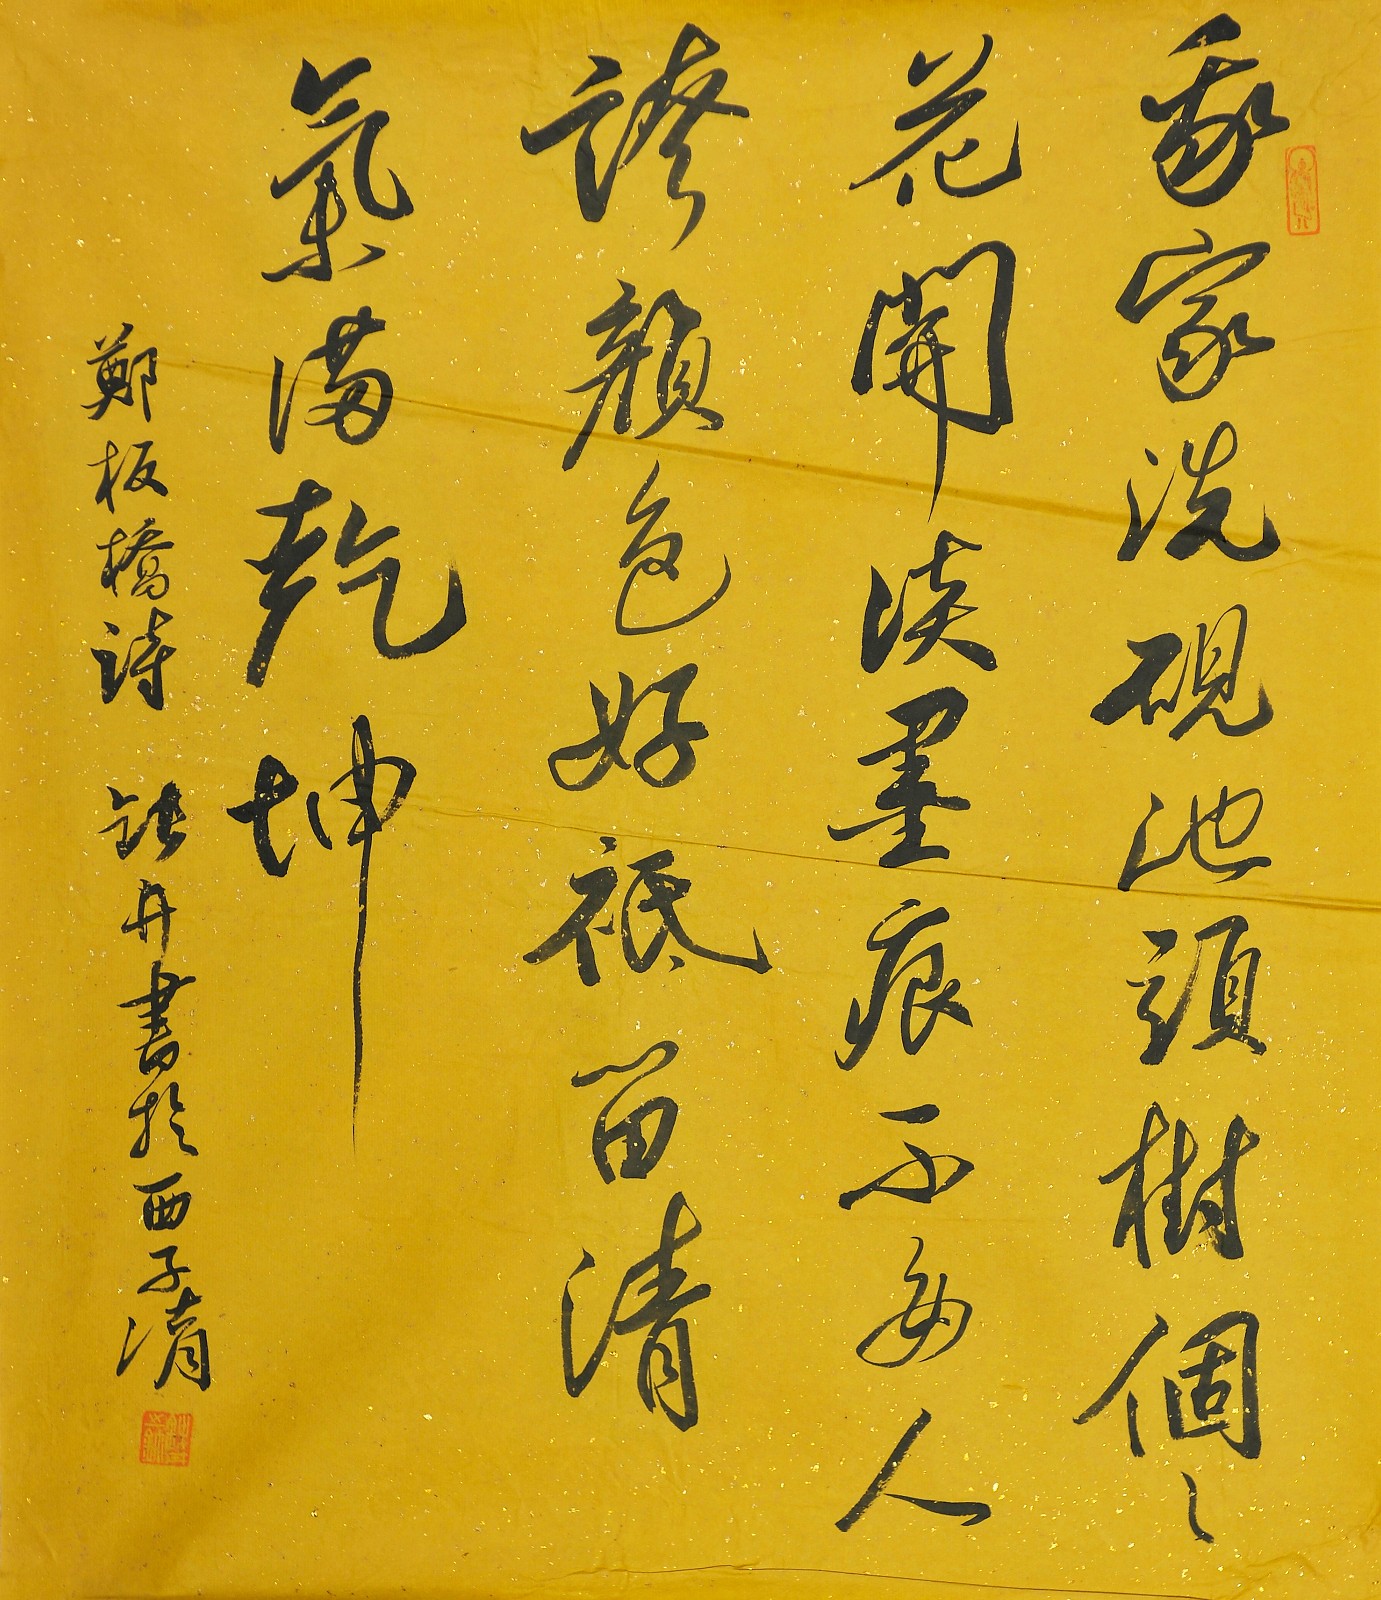 我家洗硯池頭樹個々
花開淡墨痕不要人
誇顏色好祇留清
氣滿乾坤
鄭板橋詩 丹書於西子湖